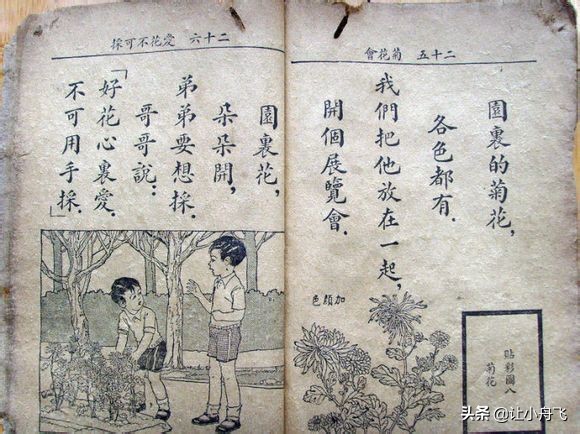 菊花會 二十五
園裏的菊花，
各色都有．
我們把他放在一起，
開個展覽會．
加顏色
貼彩圖八
菊花
愛花不可採 二十六
園裏花，
朵朵開，
弟弟要想採．
哥哥說：
「好花心裏愛．
不可用手採．」
头条 @让小丹飞